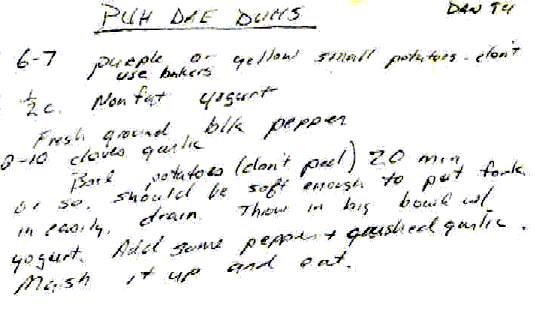 PUH DAE DUHS
DAN 94
6-7 purple or yellow small potatoes - don't
use bakers
1/2 c. Nonfat yogurt
Fresh ground blk pepper
8-10 cloves garlic
Boil potatoes (don't peel) 20 min
or so. should be soft enough to put fork
in easily. drain. Throw in big bowl w/
yogurt. Add some pepper + crushed garlic.
Mash it up and eat.